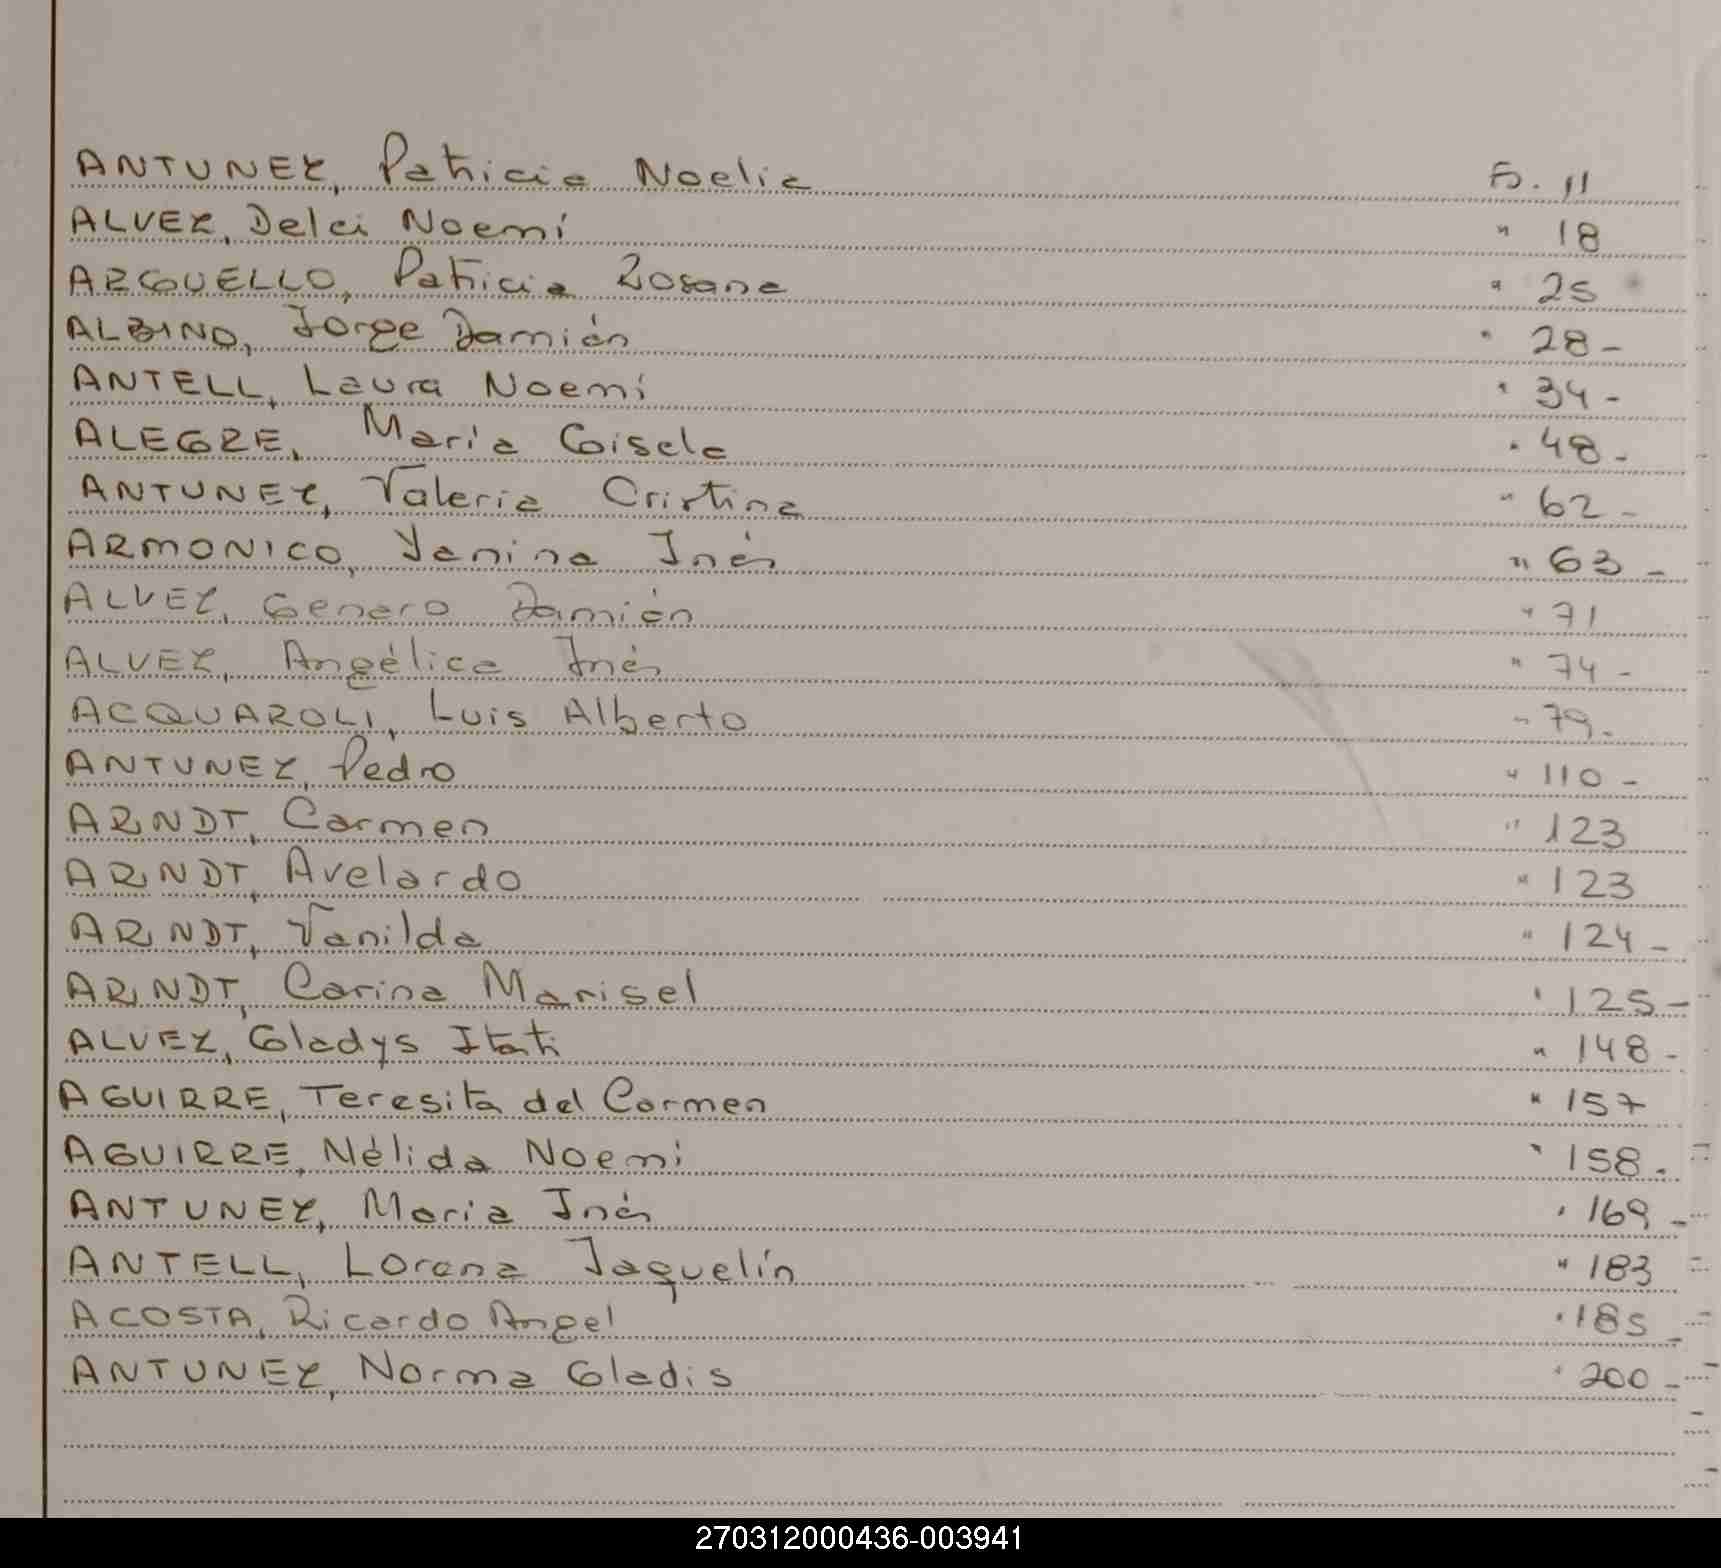 ANTUNEZ, Patricia Noelia Fs. 11
ALVEZ, Delci Noemí " 18
ARGUELLO, Patricia Rosana " 25
ALBINO, Jorge Damián " 28-
ANTELL, Laura Noemí " 34-
ALEGRE, María Gisela " 48-
ANTUNEZ, Valeria Cristina " 62-
ARMONICO, Yanina Inés " 63-
ALVEZ, Genaro Damián " 71
ALVEZ, Angélica Inés " 74-
ACQUAROLI, Luis Alberto " 79-
ANTUNEZ, Pedro " 110-
ARNDT, Carmen " 123
ARNDT, Avelardo " 123
ARNDT, Vanilda " 124-
ARNDT, Carina Marisel " 125-
ALVEZ, Gladys Itatí " 148-
AGUIRRE, Teresita del Carmen " 157
AGUIRRE, Nélida Noemi " 158-
ANTUNEZ, María Inés " 169-
ANTELL, Lorena Jaquelín " 183
ACOSTA, Ricardo Angel " 185-
ANTUNEZ, Norma Gladis " 200-
270312000436-003941